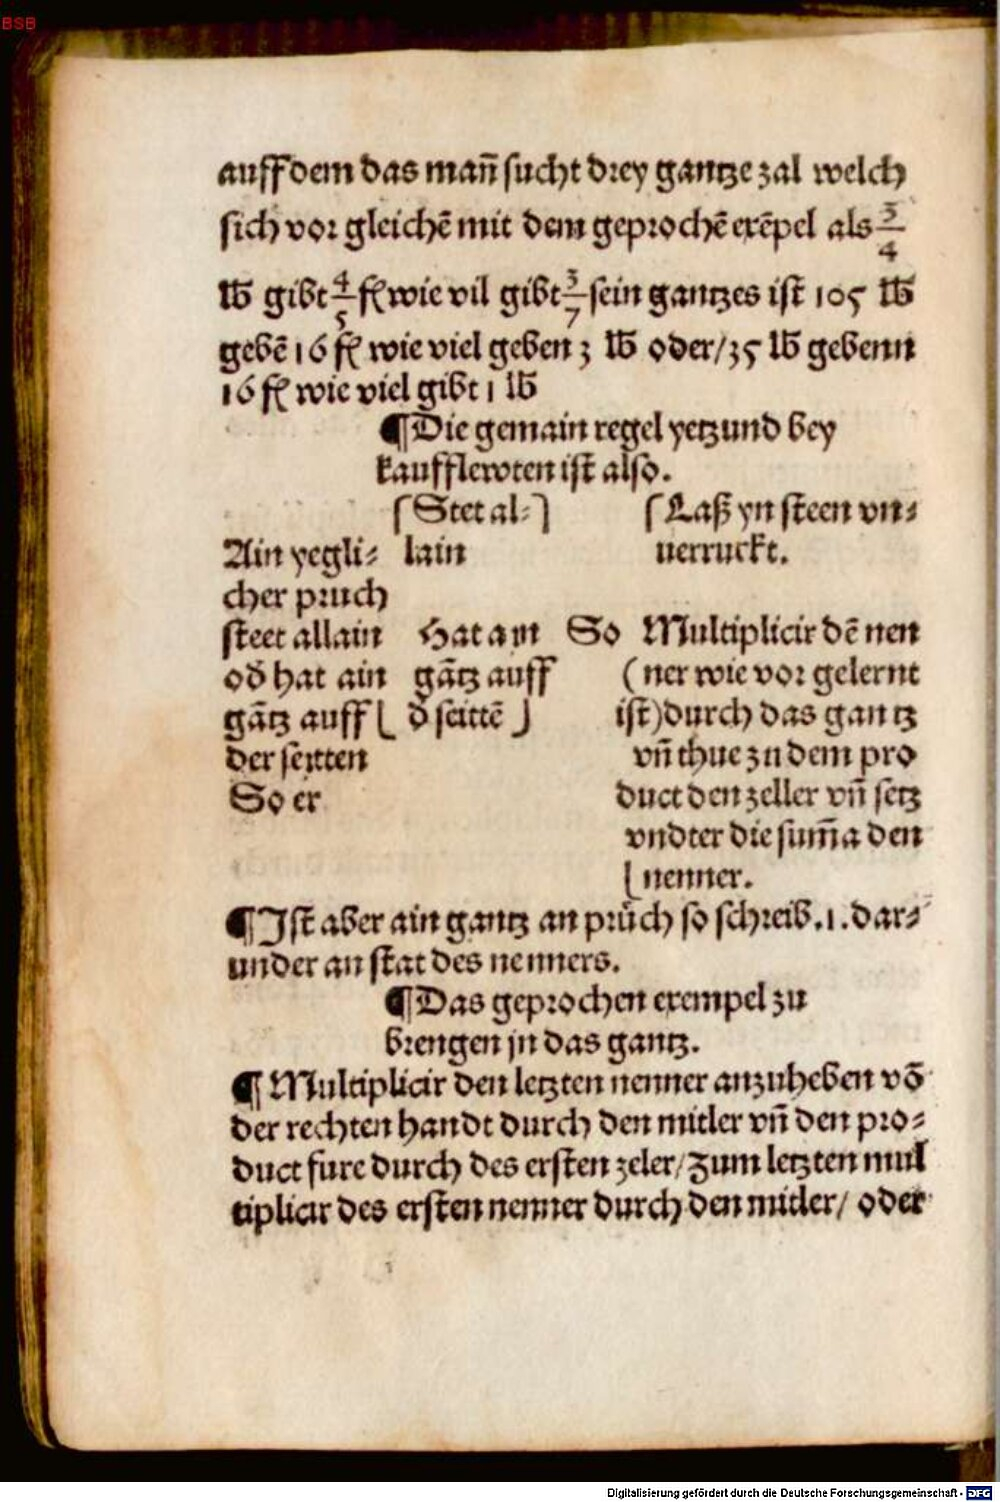 BSB
auff dem das mañ sucht drey gantze zal welch
sich vor gleichē mit dem geprochē exēpel als 3/4
lb gibt 4/5 fl wie vil gibt 3/7 sein gantzes ist 105 lb
gebē 16 fl wie viel geben 3 lb oder/35 lb gebenn
16 fl wie viel gibt 1 lb
¶Die gemain regel yetzund bey
kaufflewten ist also.
Ain yegli-
cher pruch
steet allain
od̄ hat ain
gātz auff
der seitten
So er
Stet al-
lain
Hat ain
gātz auff
d̄ seittē
So
Laß yn steen vn-
uerruckt.
Multiplicir dē nen
(ner wie vor gelernt
ist)durch das gantz
vñ thue zu dem pro
duct den zeller vñ setz
vndter die sum̄a den
nenner.
¶Ist aber ain gantz an prüch so schreib.1.dar-
under an stat des nenners.
¶Das geprochen exempel zu
brengen jn das gantz.
¶Multiplicir den letzten nenner anzuheben vō
der rechten handt durch den mitler vñ den pro-
duct fure durch des ersten zeler/zum letzten mul
tiplicir des ersten nenner durch den mitler/ oder
Digitalisierung gefördert durch die Deutsche Forschungsgemeinschaft - DFG